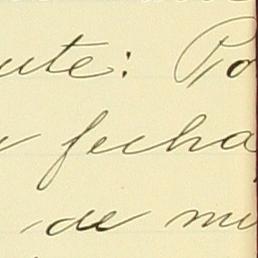 ute: Po
fecha
de mi